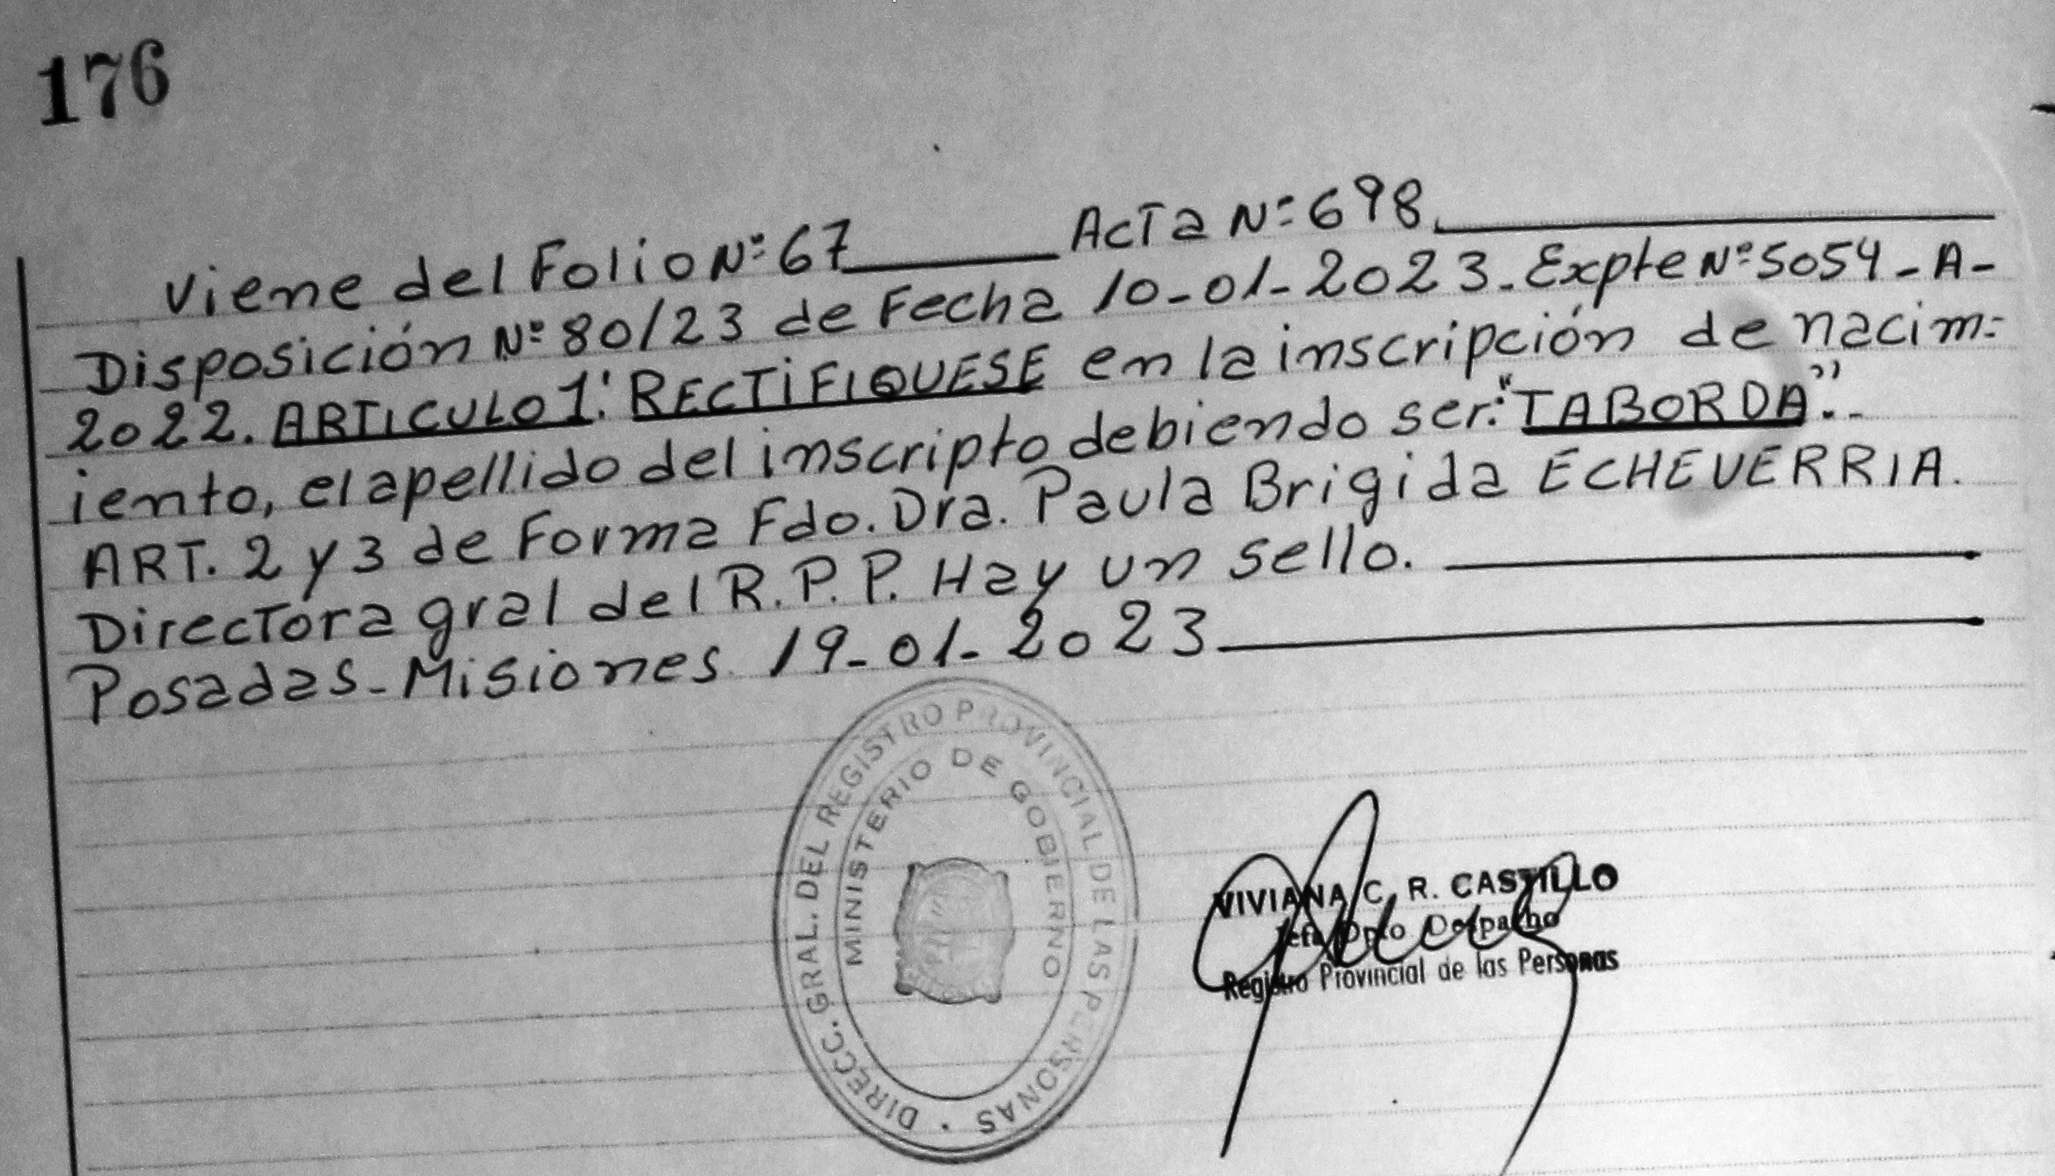 176
Viene del Folio Nº: 67 Acta Nº: 698.
Disposición Nº: 80/23 de Fecha 10-01-2023. Expte Nº: 5054-A-
2022. ARTICULO 1: RECTIFIQUESE en la inscripción de nacim=
iento, el apellido del inscripto debiendo ser: "TABORDA".-
ART. 2 y 3 de Forma Fdo. Dra. Paula Brigida ECHEVERRIA.
Directora gral del R.P.P. Hay un sello.
Posadas-Misiones 19-01-2023
DIRECC. GRAL. DEL REGISTRO PROVINCIAL DE LAS PERSONAS
MINISTERIO DE GOBIERNO
VIVIANA C. R. CASTILLO
Jefa Dpto Despacho
Registro Provincial de las Personas